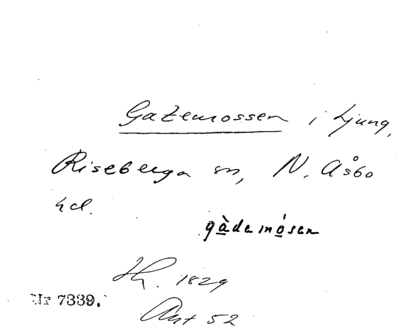 Gatemossen i Ljung,
Riseberga sn, N. Åsbo
hd.
gàdemósen
1829
Nr 7339.
52